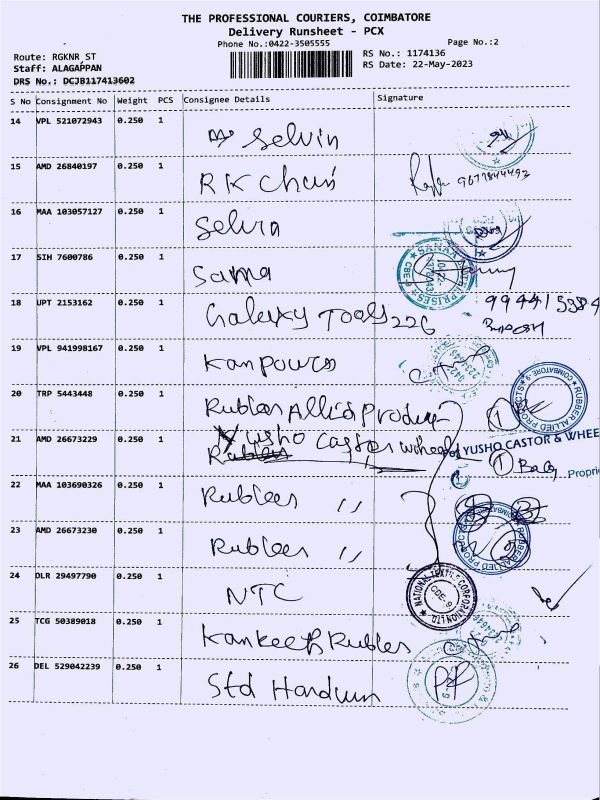 THE PROFESSIONAL COURIERS, COIMBATORE
Delivery Runsheet - PCX
Phone No.:0422-3505555
Page No.:2
Route: RGKNR_ST
RS No.: 1174136
Staff: ALAGAPPAN
RS Date: 22-May-2023
DRS No.: DCJB117413602
S No Consignment No Weight PCS Consignee Details Signature
14 VPL 521072943 0.250 1 Selvin
15 AMD 26840197 0.250 1 RK Chuni 9677844492
16 MAA 103057127 0.250 1 Selvin
17 SIH 7600786 0.250 1 Sana SANAA ENTERPRISES
18 UPT 2153162 0.250 1 Galexy Tools 226
19 VPL 941998167 0.250 1 Kanpowro
20 TRP 5443448 0.250 1 Rubler Allied Produce RUBBER ALLIED PRODUCTS COIMBATORE-9
21 AMD 26673229 0.250 1 Yusho Caster wheel For YUSHO CASTOR & WHEE
Proprie
22 MAA 103690326 0.250 1 Rubleer ,,
23 AMD 26673230 0.250 1 Rubleer ,, RUBBER ALLIED PRODUCTS
24 DLR 29497790 0.250 1 NTC NATIONAL TEXTILE CORPORATION LTD. CBE-9
25 TCG 50389018 0.250 1 Rubler
26 DEL 529042239 0.250 1 Std Hardwm